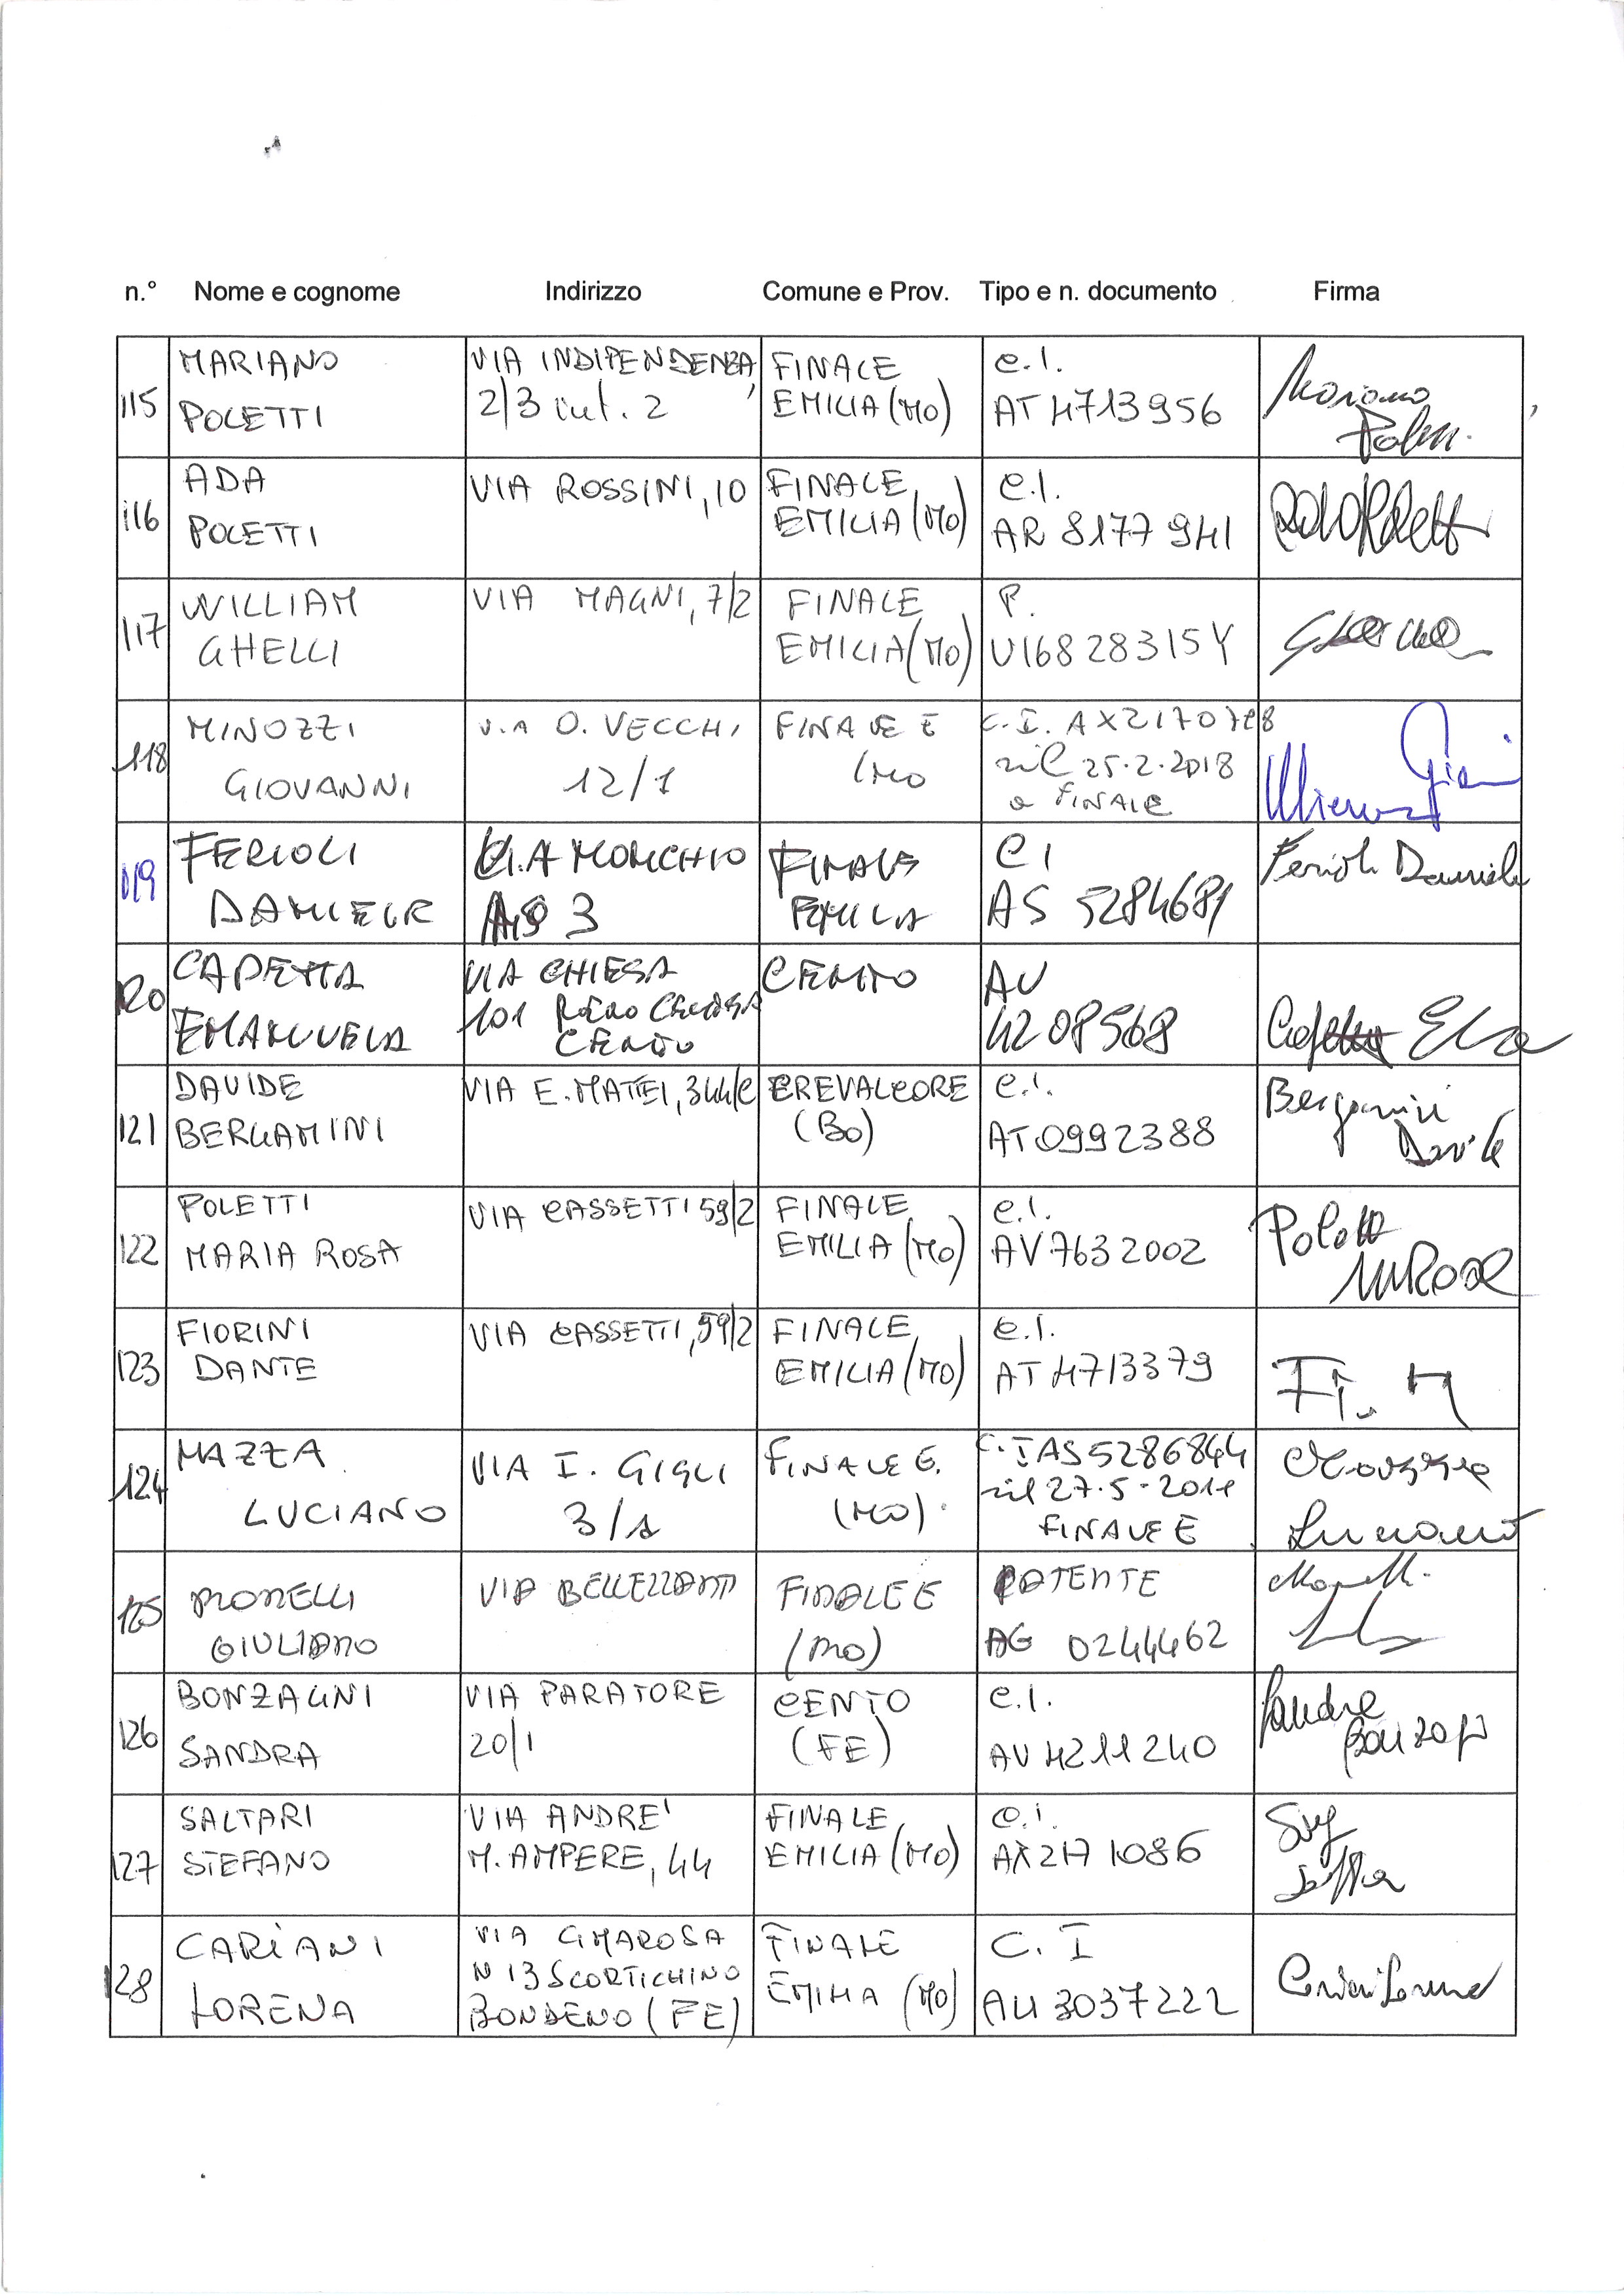 n.° Nome e cognome Indirizzo Comune e Prov. Tipo e n. documento Firma
115 MARIANO POLETTI VIA INDIPENDENZA, 2/3 int. 2 FINALE EMILIA (MO) C.I. AT 4713956 Mariano
116 ADA POLETTI VIA ROSSINI, 10 FINALE EMILIA (MO) C.I. AR 8177941
117 WILLIAM GHELLI VIA MAGNI, 7/2 FINALE EMILIA (MO) P. U16828315Y
118 MINOZZI GIOVANNI VIA O. VECCHI 12/1 FINALE E (MO C.I. AX2170728 ril 25.2.2018 a FINALE
119 FERIOLI DANIELE VIA MONCHIO 3 FINALE EMILIA CI AS 5284681 Ferioli Daniele
120 EMANUELA VIA CHIESA 101 CENTO CENTO AV 4208568
121 DAVIDE BERGAMINI VIA E. MATTEI, 344/C CREVALCORE (BO) C.I. AT0992388 Bergamini Davide
122 POLETTI MARIA ROSA VIA CASSETTI 59/2 FINALE EMILIA (MO) C.I. AV7632002 Poletti M Rosa
123 FIORINI DANTE VIA CASSETTI, 59/2 FINALE EMILIA (MO) C.I. AT4713379
124 MAZZA LUCIANO VIA I. GIGLI 3/1 FINALE E. (MO) C.I AS5286844 ril 27.5-2011 FINALE E Mazza Luciano
125 MORELLI GIULIANO VIA FINALE E (MO) PATENTE AG 0244462
126 BONZAGNI SANDRA VIA PARATORE 20/1 CENTO (FE) C.I. AV4211240 Sandra
127 SALTARI STEFANO VIA ANDRE' M. AMPERE, 44 FINALE EMILIA (MO) C.I. AX2171086
128 CARIANI LORENA VIA CIMAROSA N 13 SCORTICHINO BONDENO (FE) FINALE EMILIA (MO) C.I AU 3037222 Cariani Lorena